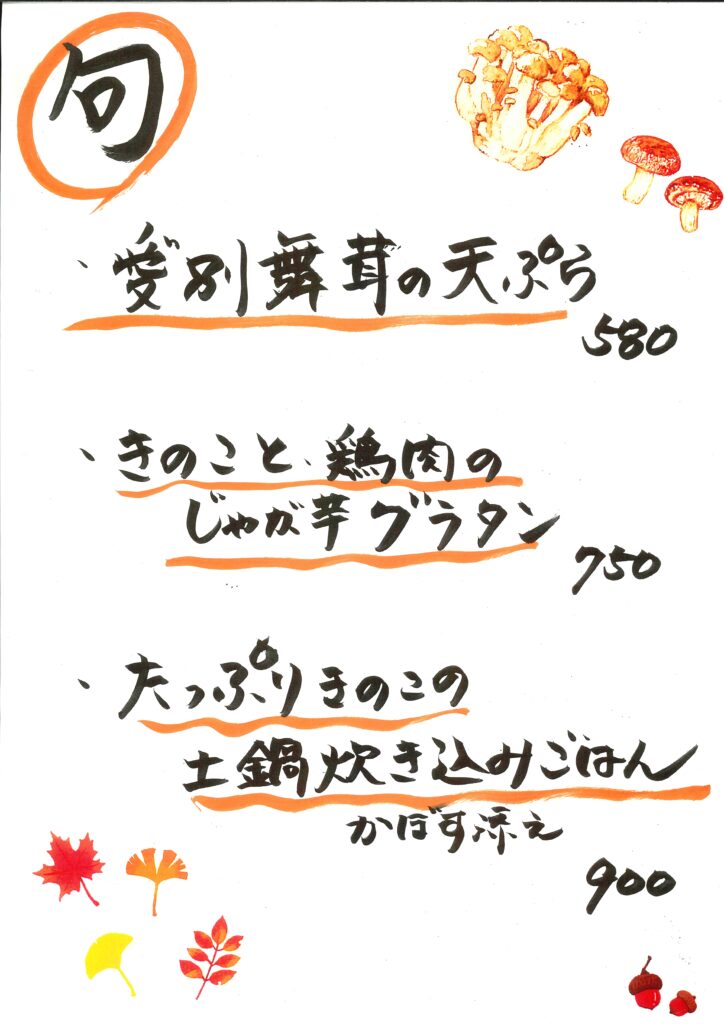 句
・愛別舞茸の天ぷら
580
・きのこと、鶏肉の
じゃが芋グラタン
750
・たっぷりきのこの
土鍋炊き込みごはん
かぼす添え
900